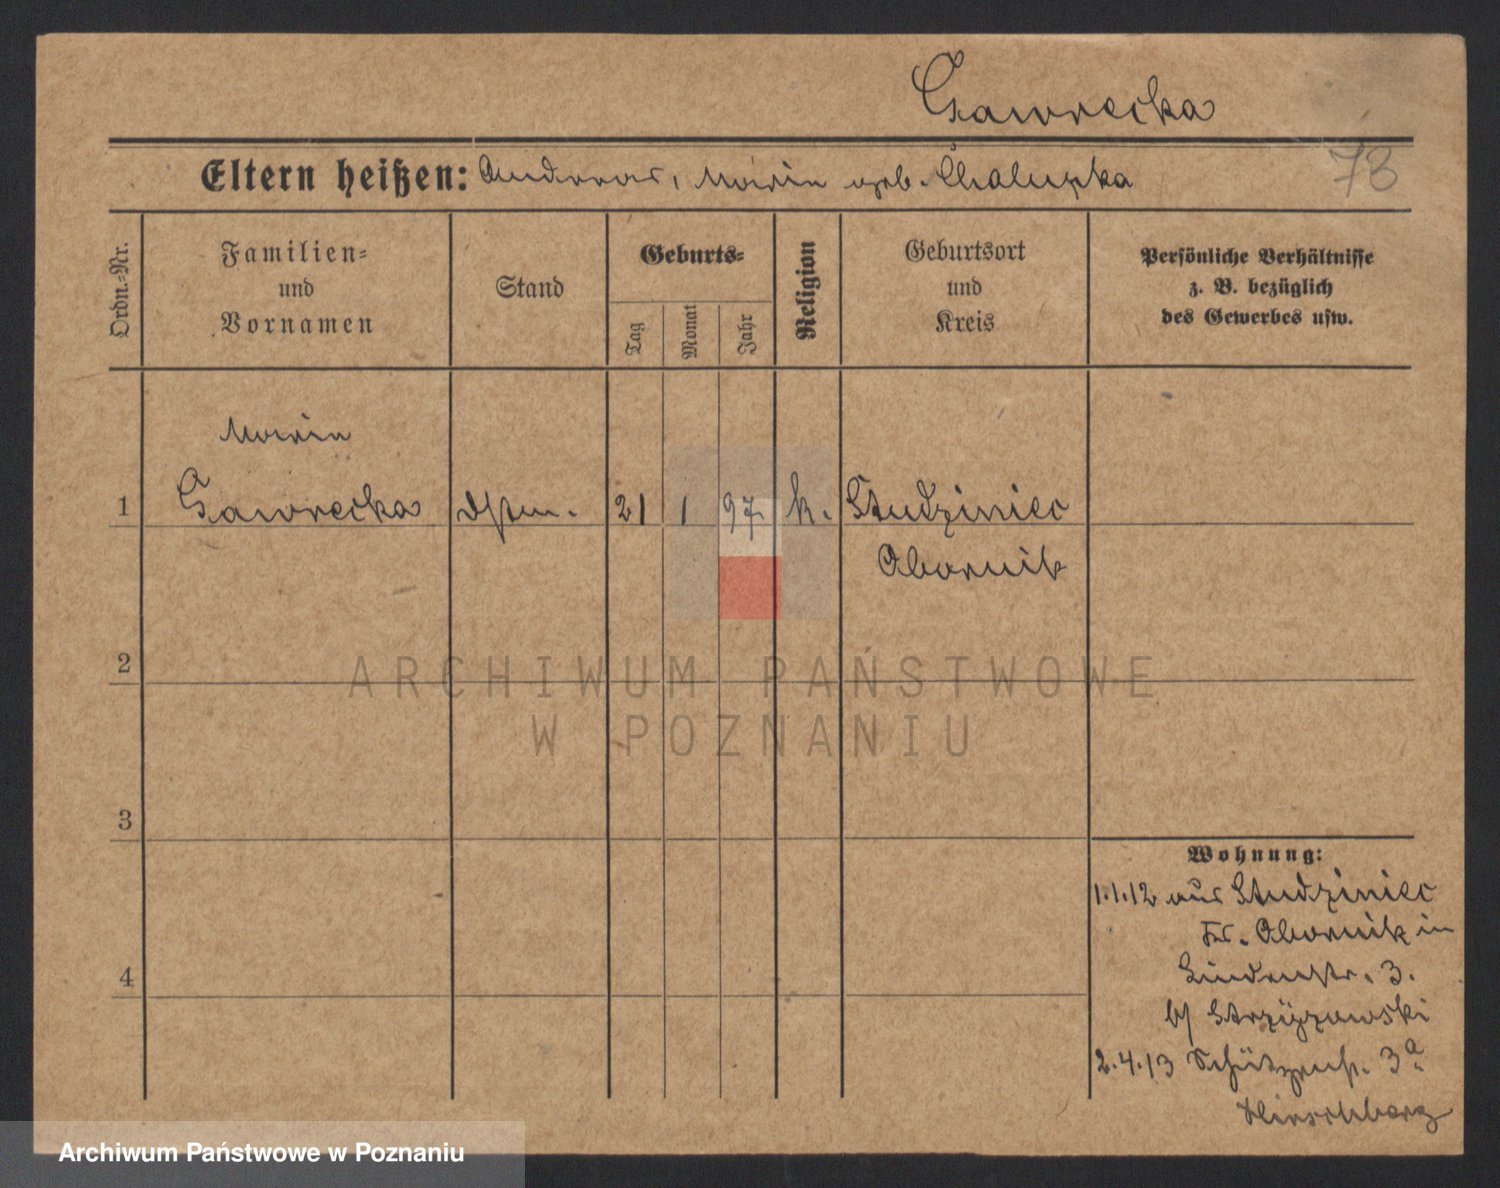 Gawrecka
Eltern heißen: Andreas, Marie geb. Chalupka
78
Ordn.=Nr.
Familien=
und
Vornamen
Stand
Geburts=
Tag
Monat
Jahr
Religion
Geburtsort
und
Kreis
Persönliche Verhältnisse
z. B. bezüglich
des Gewerbes usw.
Marie
1 Gawrecka dstm. 21 1 97 k. Studziniec
Obornik
2
ARCHIWUM PAŃSTWOWE
W POZNANIU
3
Wohnung:
1.1.12 aus Studziniec
Kr. Obornik in
4
Lindenstr. 3.
b/ Strzyzewski
2.4.13 Schützenstr. 3a
Hirschberg
Archiwum Państwowe w Poznaniu